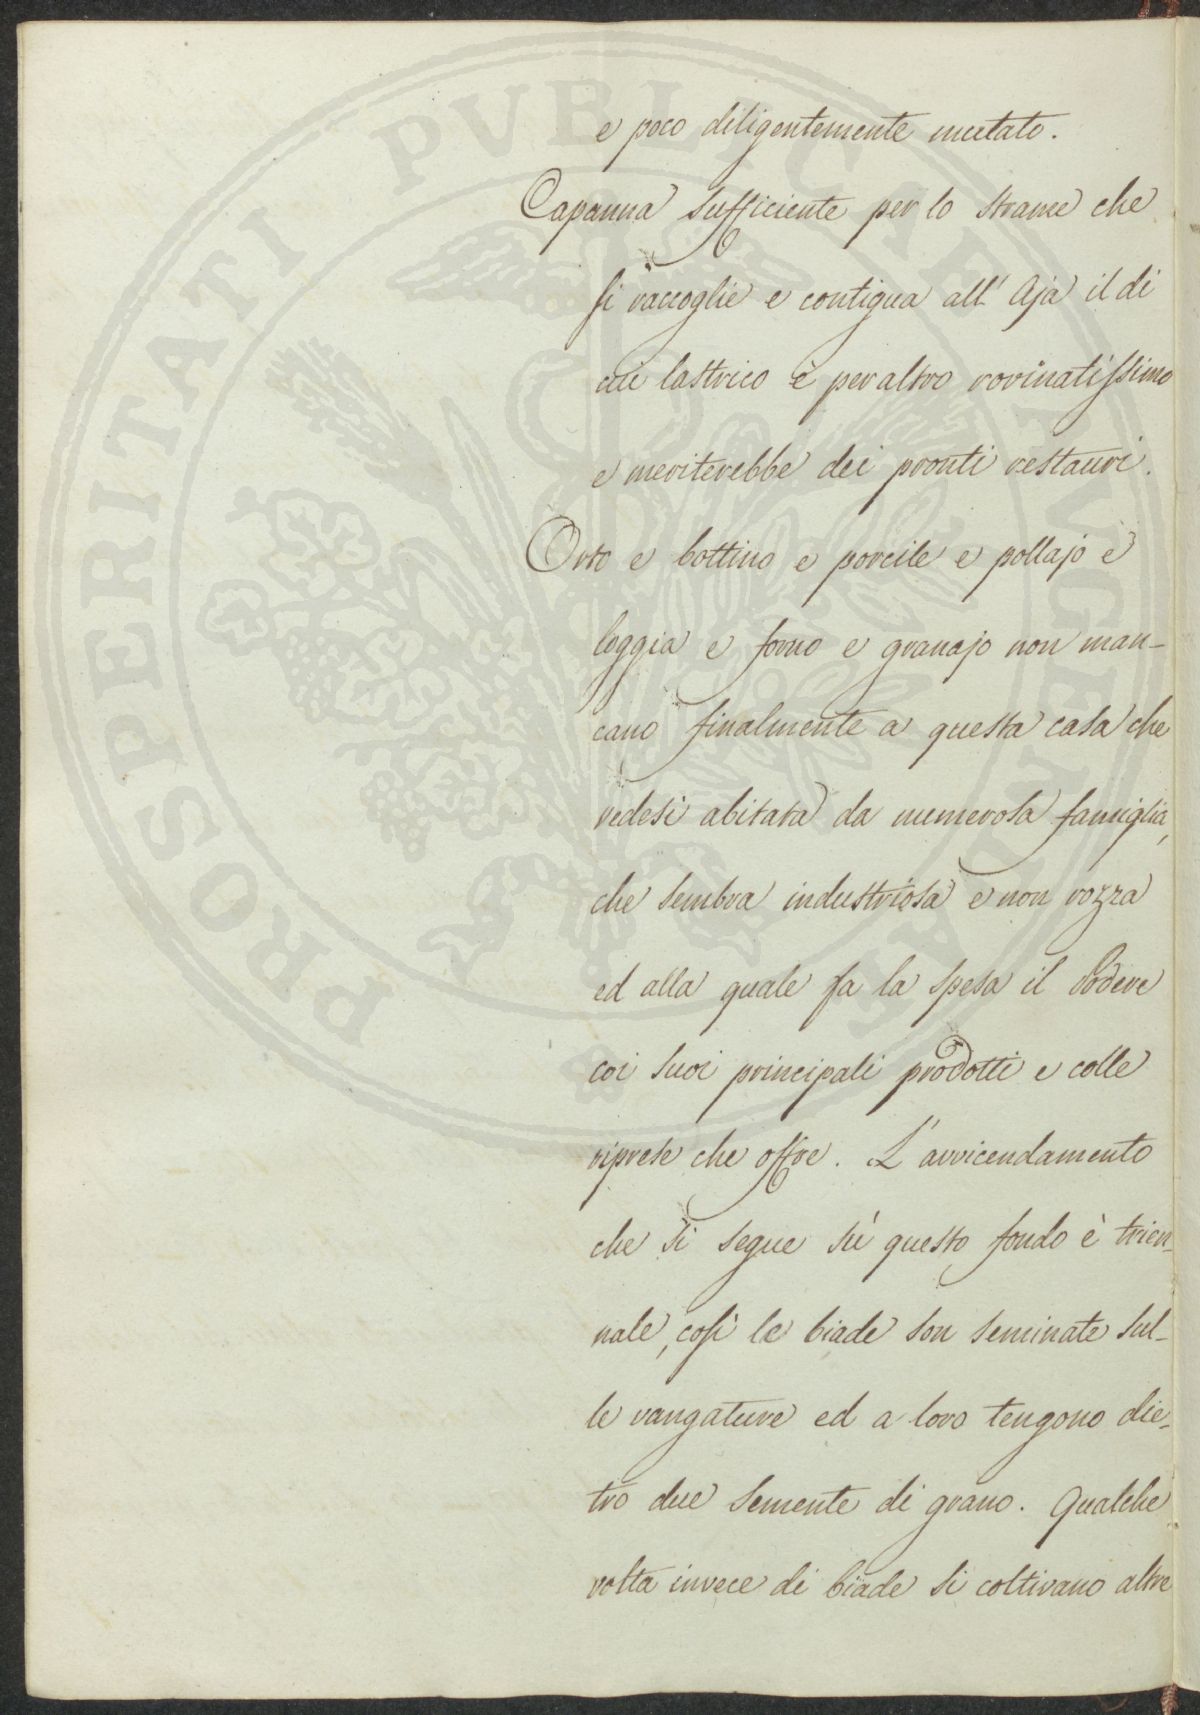 e poco diligentemente mutato.
Capanna sufficiente per lo strame che
si raccoglie e contigua all' Aja il di
cui lastrico è peraltro rovinatissimo
e meriterebbe dei pronti restauri.
Orto e bottino e porcile e pollajo e
loggia e forno e granajo non man-
cano finalmente a questa casa che
vedesi abitata da numerosa famiglia,
che sembra industriosa e non rozza
ed alla quale fa la spesa il Podere
coi suoi principali prodotti e colle
riprese che offre. L'avvicendamento
che si segue sù questo fondo è trien-
nale, così le biade son seminate sul-
le vangature ed a loro tengono die-
tro due semente di grano. Qualche
volta invece di biade si coltivano altre
PROSPERITATI PVBLICAE AVGENDAE